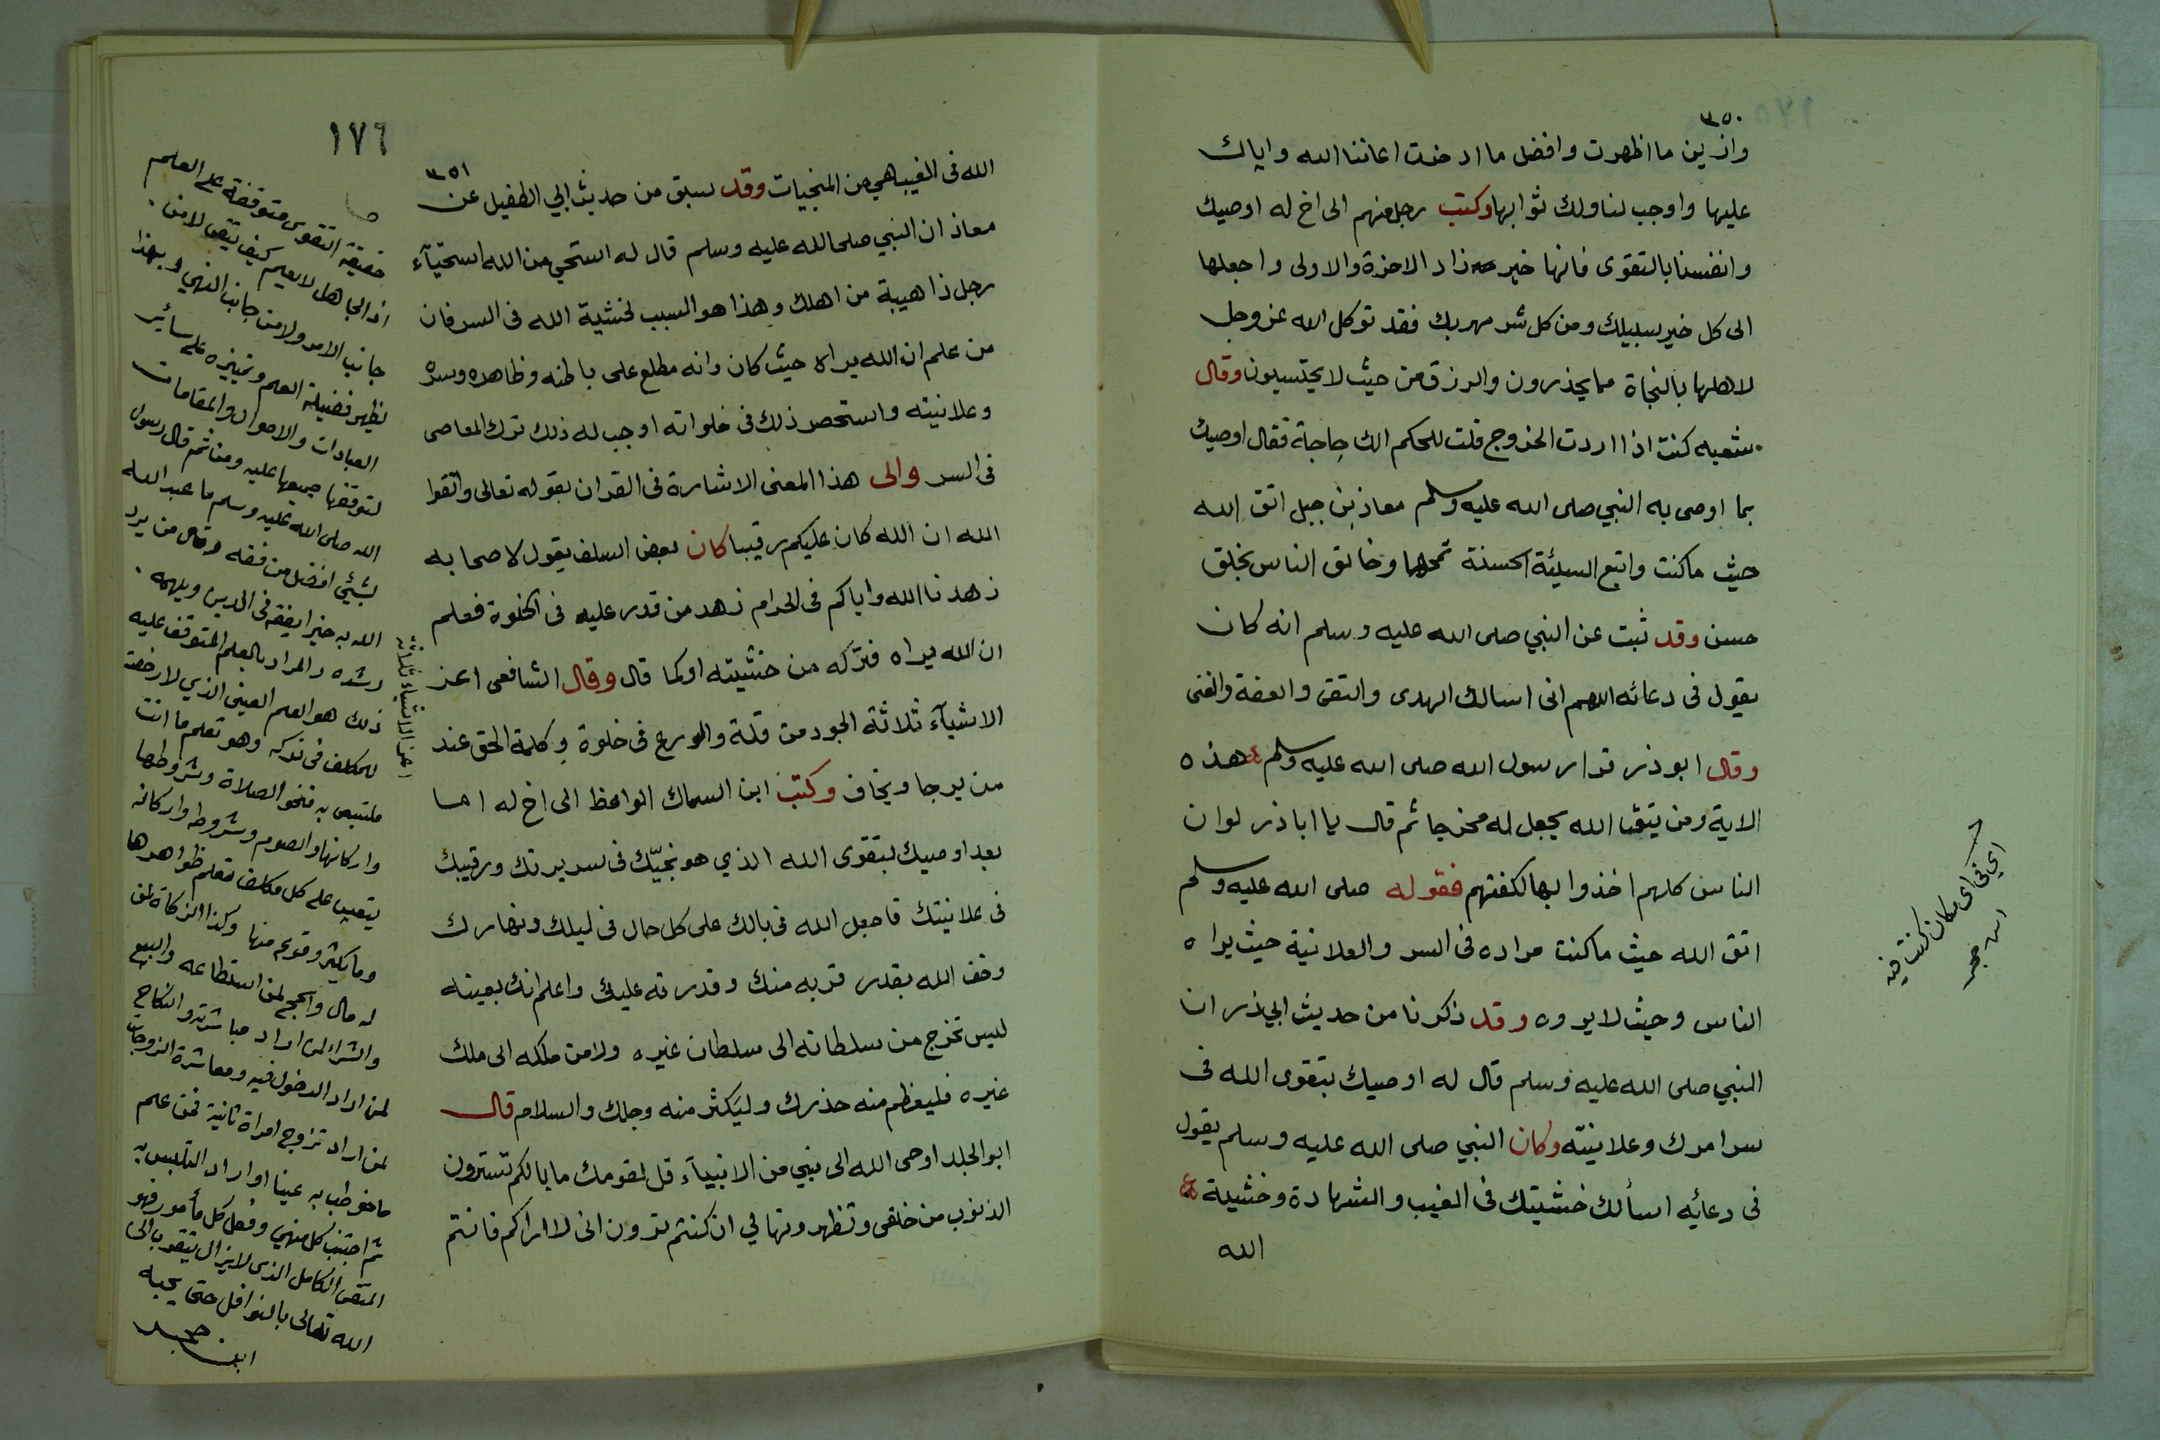 ٣٥٠
وازين ما اظهرت وافضل ما ادخرت اعاننا الله واياك
عليها واوجب لنا ولك ثوابها وكتب رجل منهم الى اخ له اوصيك
وانفسنا بالتقوى فانها خير زاد الاخرة والاولى واجعلها
الى كل خير سبيلك ومن كل شر مهربك فقد توكل الله عز وجل
لاهلها بالنجاة مما يحذرون والرزق من حيث لا يحتسبون وقال
شعبه كنت اذا اردت الخروج قلت للحكم الك حاجة فقال اوصيك
بما اوصى به النبي صلى الله عليه وسلم معاذ بن جبل اتق الله
حيث ما كنت واتبع السيئة الحسنة تمحها وخالق الناس بخلق
حسن وقد ثبت عن النبي صلى الله عليه وسلم انه كان
يقول فى دعائه اللهم انى اسالك الهدى والتقى والعفة والغنى
وقال ابو ذر قرا رسول الله صلى الله عليه وسلم هذه
الاية ومن يتق الله يجعل له مخرجا ثم قال يا ابا ذر لو ان
الناس كلهم اخذوا بها لكفتهم فقوله صلى الله عليه وسلم
اتق الله حيث ما كنت مراده فى السر والعلانية حيث يراه
الناس وحيث لا يروه وقد ذكرنا من حديث ابي ذر ان
النبي صلى الله عليه وسلم قال له اوصيك بتقوى الله فى
سر امرك وعلانيته وكان النبي صلى الله عليه وسلم يقول
فى دعائه اسألك خشيتك فى الغيب والشهادة وخشية
الله
اي فى اى مكان كنت فيه
١٧٦
٣٥١
الله فى الغيب هي من المنجيات وقد سبق من حديث ابي الطفيل عن
معاذ ان النبي صلى الله عليه وسلم قال له استحي من الله استحيآء
رجل ذا هيبة من اهلك وهذا هو السبب لخشية الله فى السر فان
من علم ان الله يراه حيث كان وانه مطلع على باطنه وظاهره وسره
وعلانيته واستحضر ذلك فى خلواته اوجب له ذلك ترك المعاصى
فى السر والى هذا المعنى الاشارة فى القران بقوله تعالى واتقوا
الله ان الله كان عليكم رقيبا كان بعض السلف يقول لاصحابه
زهدنا الله واياكم فى الحرام زهد من قدر عليه فى الخلوة فعلم
ان الله يراه فتركه من خشيته او كما قال وقال الشافعى اعز
الاشيآء ثلاثة الجود من قلة والورع فى خلوة وكلمة الحق عند
من يرجا ويخاف وكتب ابن السماك الواعظ الى اخ له اما
بعد اوصيك بتقوى الله الذي هو نجيّك فى سريرتك ورقيبك
فى علانيتك فاجعل الله فى بالك على كل حال فى ليلك ونهارك
وخف الله بقدر قربه منك وقدرته عليك واعلم انك بعينه
ليس تخرج من سلطانه الى سلطان غيره ولا من ملكه الى ملك
غيره فليعظم منه حذرك وليكثر منه وجلك والسلام قال
ابو الجلد اوحى الله الى نبي من الانبيآء قل لقومك ما بالكم تسترون
الذنوب من خلقى وتظهرونها لي ان كنتم ترون انى لا اراكم فانتم
حقيقة التقوى متوقفة على العلم
اذ الجاهل لا يعلم كيف يتقى لا من
جانب الامر ولا من جانب النهي وبهذا
يظهر فضيلة العلم وتميزه على سائر
العبادات والاحوال والمقامات
لتوقفها جميعها عليه ومن ثم قال رسول
الله صلى الله عليه وسلم ما عبد الله
بشئ افضل من فقه وقال من يرد
الله به خيرا يفقهه فى الدين ويلهمه
رشده والمراد بالعلم المتوقف عليه
ذلك هو العلم العيني الذي لا رخصة
للمكلف فى تركه وهو تعلم ما انت
ملتبس به فنحو الصلاة وشروطها
واركانها والصوم وشروطه واركانه
يتعين على كل مكلف تعلم ظواهرها
وما يكثر وقوعه منها وكذا الزكاة لمن
له مال والحج لمن استطاعه والبيع
والشراء لمن اراد مباشرته والنكاح
لمن اراد الدخول فيه ومعاشرة الزوجات
لمن اراد تزوج امراة ثانية فمن علم
ما خوطب به عينا او اراد التلبس به
ثم اجتنب كل منهي وفعل كل مأمور فهو
المتقى الكامل الذى لا يزال يتقرب الى
الله تعالى بالنوافل حتى يحبه
ابن حجر
اعز الاشياء ثلاثة